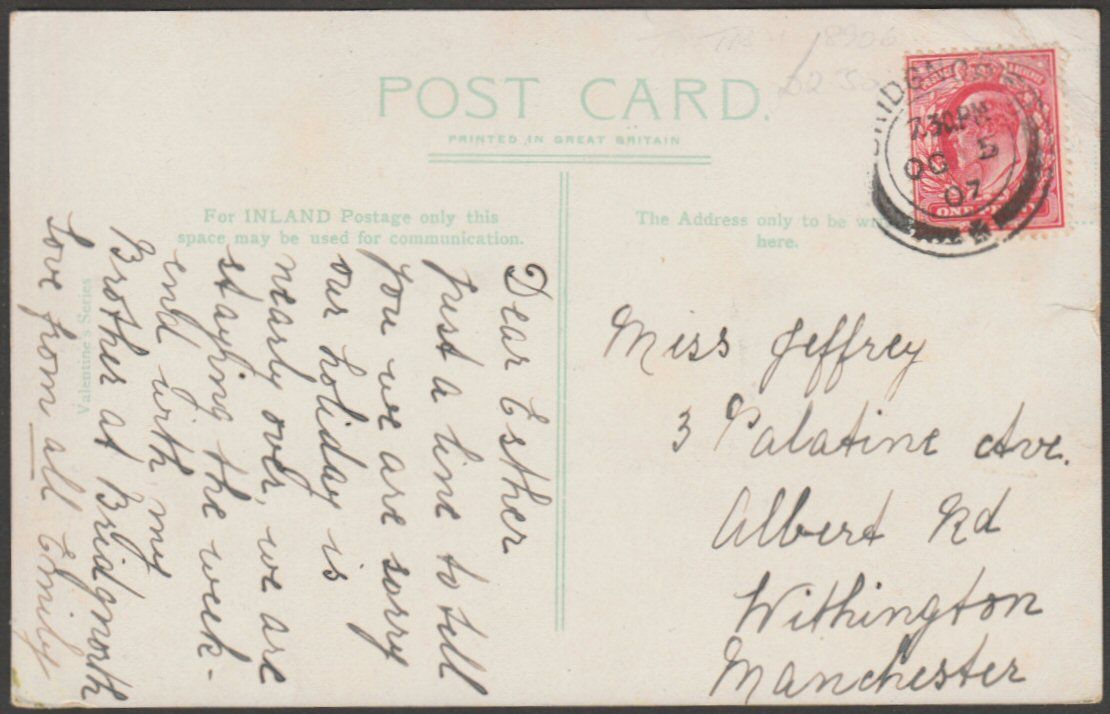 POST CARD.
PRINTED IN GREAT BRITAIN
For INLAND Postage only this
space may be used for communication.
The Address only to be
here.
Valentine's Series
BRIDGNORTH
7.30.PM
OC 5
07
Dear Esther
Just a line to tell
you we are sorry
our holiday is
nearly over, we are
staying the week-
end with my
Brother at Bridgnorth
Love from all Emily
Miss Jeffrey
3 Palatine Ave.
Albert Rd
Withington
Manchester